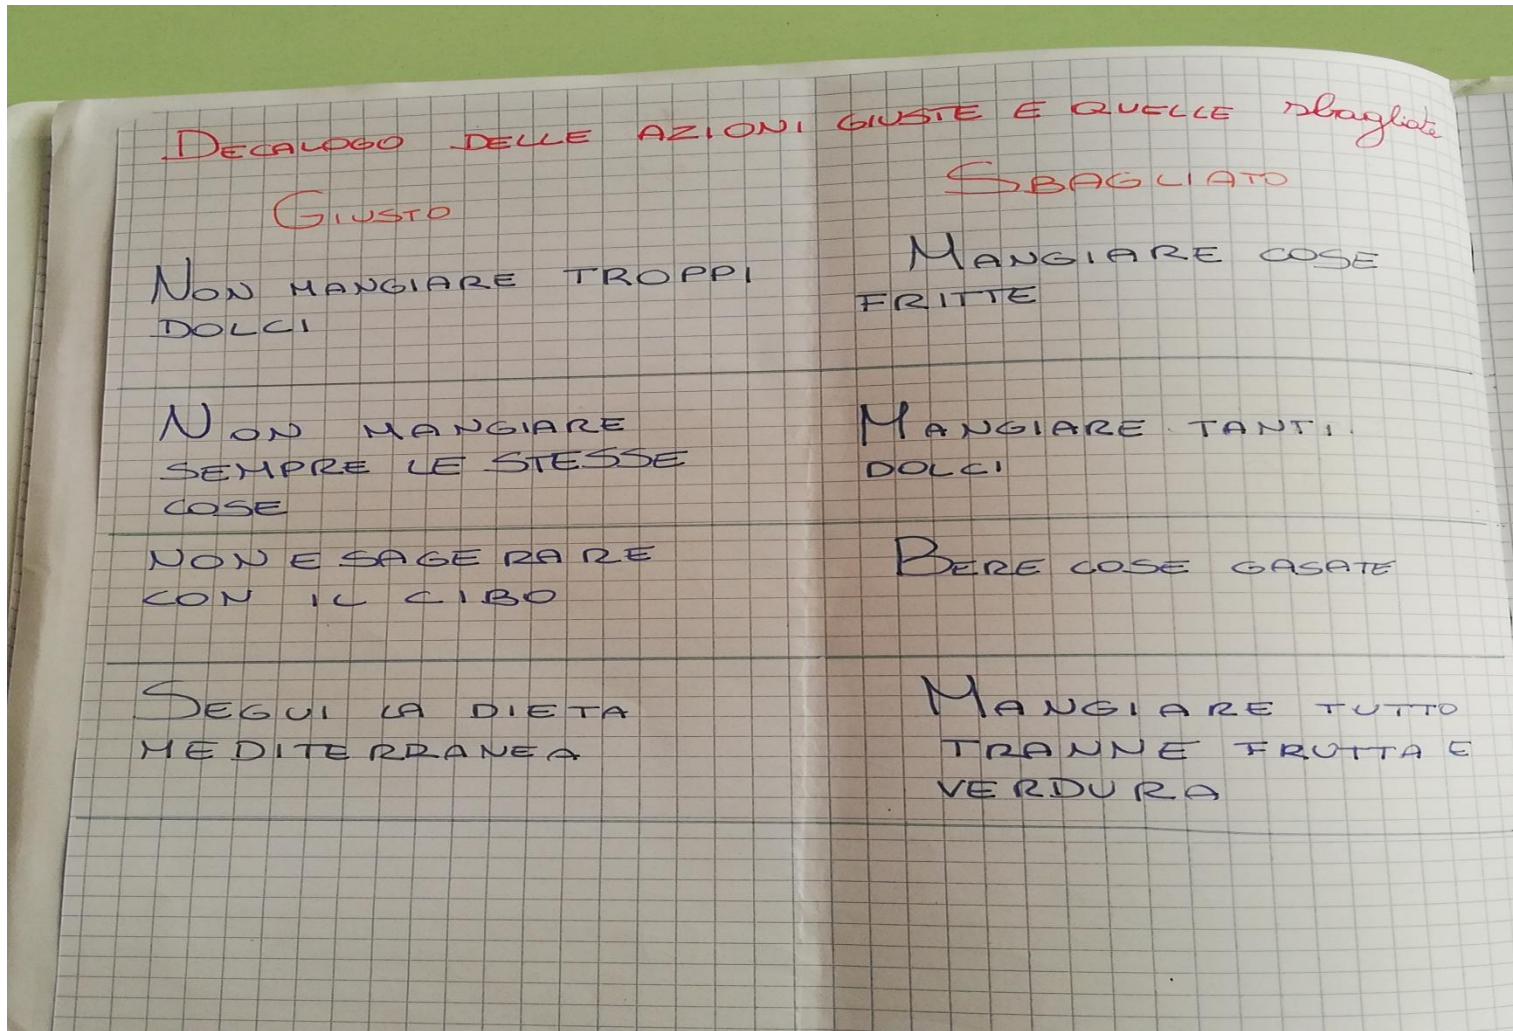 DECALOGO DELLE AZIONI GIUSTE E QUELLE sbagliate
GIUSTO
SBAGLIATO
NON MANGIARE TROPPI
DOLCI
MANGIARE COSE
FRITTE
NON MANGIARE
SEMPRE LE STESSE
COSE
MANGIARE TANTI
DOLCI
NON ESAGERARE
CON IL CIBO
BERE COSE GASATE
SEGUI LA DIETA
MEDITERRANEA
MANGIARE TUTTO
TRANNE FRUTTA E
VERDURA